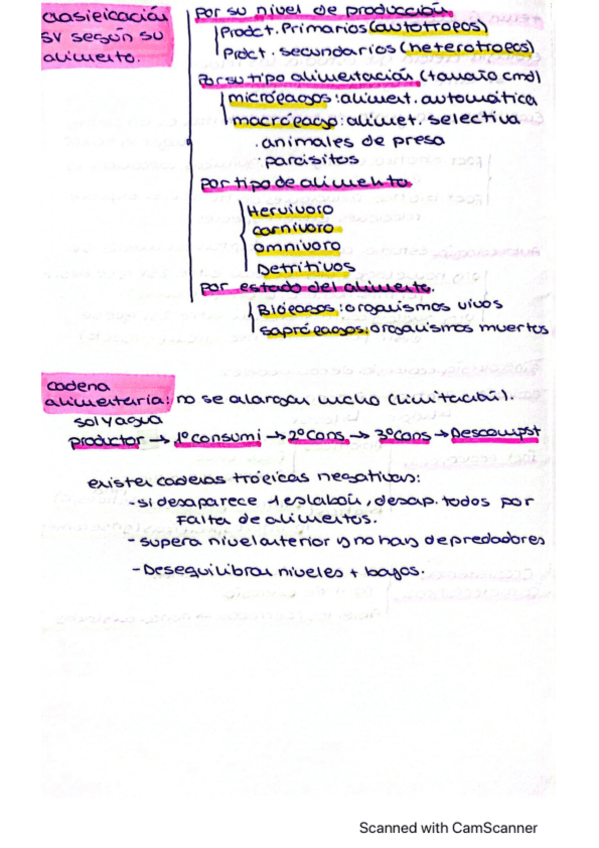 clasificación
SV según su
alimento.
por su nivel de producción
Prodct. Primarios (autotrofos)
Prdct. secundarios (heterotrofos)
Por su tipo alimentación (tamaño cmd)
micrófagos: aliment. automática
macrófago: alimet. selectiva
. animales de presa
. parásitos
por tipo de alimento.
Hervívoro
carnívoro
omnívoro
Detritivos
por estado del alimento.
Biófagos: organismos vivos
saprófagos: organismos muertos
cadena
alimentaria: no se alargan mucho (limitación).
sol y agua
productor → 1º consumi → 2º cons. → 3º cons → Descompst
existen cadenas tróficas negativas:
- si desaparece 1 eslabón, desap. todos por
falta de alimentos.
- supera nivel anterior y no hay depredadores
- Desequilibran niveles + bajos.
Scanned with CamScanner